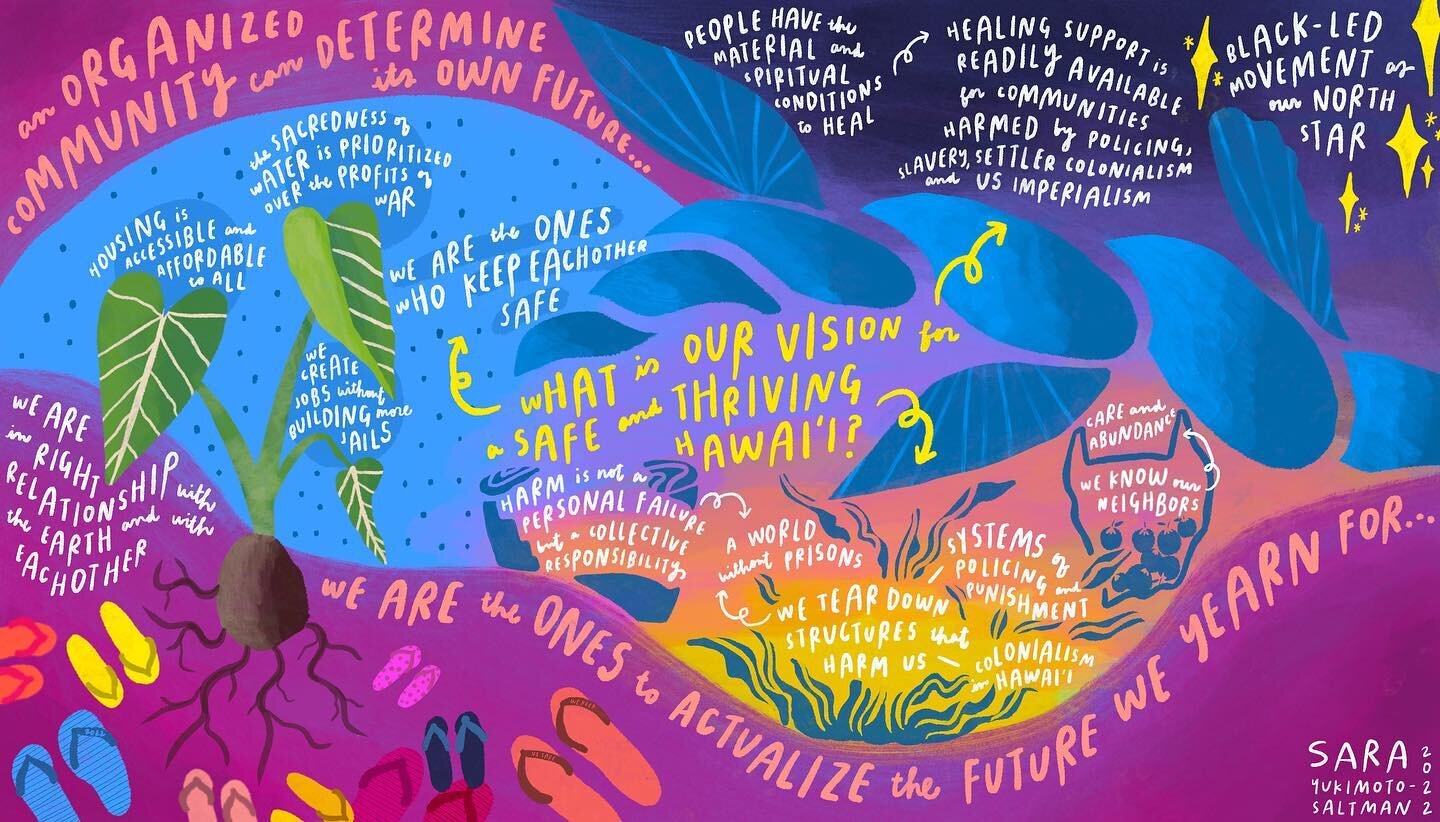 an ORGANIZED
COMMUNITY can DETERMINE
its OWN FUTURE...
the SACREDNESS of
WATER is PRIORITIZED
OVER the PROFITS of
WAR
HOUSING is
ACCESSIBLE and
AFFORDABLE
to ALL
WE ARE the ONES
WHO KEEP EACHOTHER
SAFE
WE
CREATE
JOBS without
BUILDING more
JAILS
WE ARE
in RIGHT
RELATIONSHIP with
the EARTH and with
EACHOTHER
PEOPLE HAVE the
MATERIAL and
SPIRITUAL
CONDITIONS
to HEAL
HEALING SUPPORT is
READILY AVAILABLE
for COMMUNITIES
HARMED by POLICING,
SLAVERY, SETTLER COLONIALISM
and US IMPERIALISM
BLACK-LED
MOVEMENT as
our NORTH
STAR
WHAT is OUR VISION for
a SAFE and THRIVING
HAWAI'I?
HARM is not a
PERSONAL FAILURE
but a COLLECTIVE
RESPONSIBILITY
A WORLD
without PRISONS
WE TEAR DOWN
STRUCTURES that
HARM US —
SYSTEMS of
POLICING and
PUNISHMENT
COLONIALISM
in HAWAI'I
CARE and
ABUNDANCE
WE KNOW our
NEIGHBORS
WE ARE the ONES to ACTUALIZE the FUTURE WE YEARN FOR...
2022
WE KEEP
US SAFE
SARA
YUKIMOTO-
SALTMAN
2022